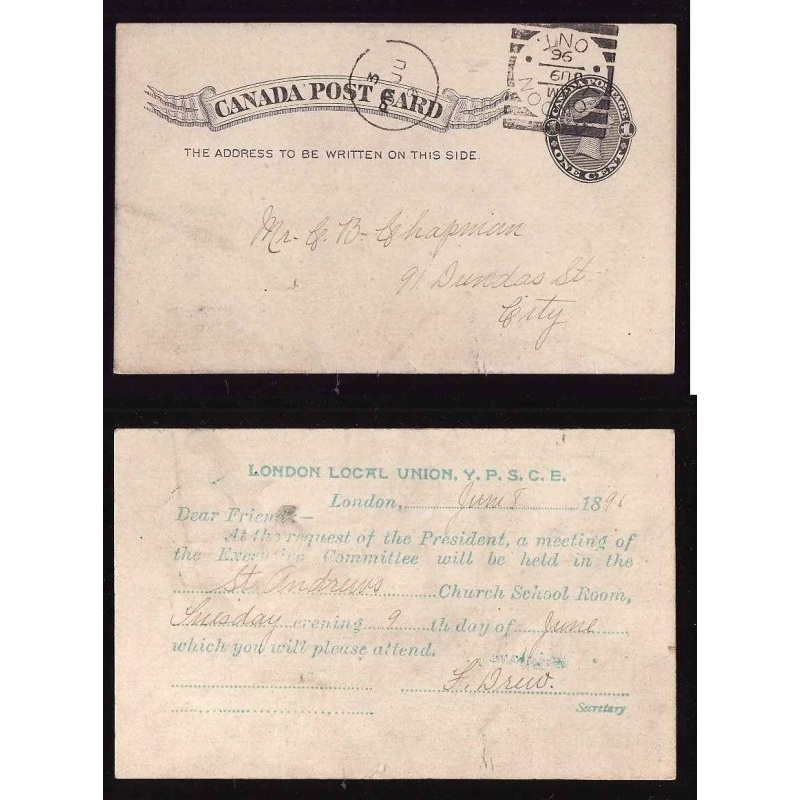 CANADA POST CARD
THE ADDRESS TO BE WRITTEN ON THIS SIDE.
ONT.
96
CANADA POSTAGE
1 ONE CENT 1
Mr. C. B. Chapman
91 Dundas St
City
LONDON LOCAL UNION, Y. P. S. C. E.
London, June 8 1896
Dear Friend:—
At the request of the President, a meeting of
the Executive Committee will be held in the
St. Andrews Church School Room,
Tuesday evening 9 th day of June
which you will please attend.
F. Drew.
Secretary